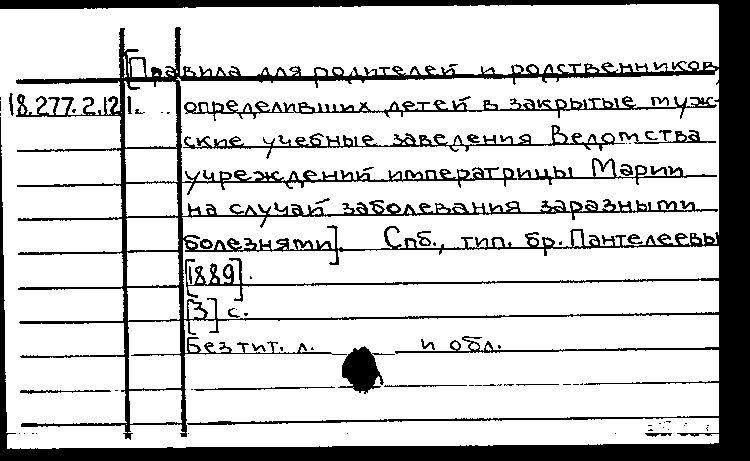 [Правила для родителей и родственников,
18.277.2.121. определивших детей в закрытые муж-
ские учебные заведения Ведомства
учреждений императрицы Марии
на случай заболевания заразными
болезнями]. Спб., тип. бр. Пантелеевы
[1889].
[3] с.
Без тит. л. и обл.